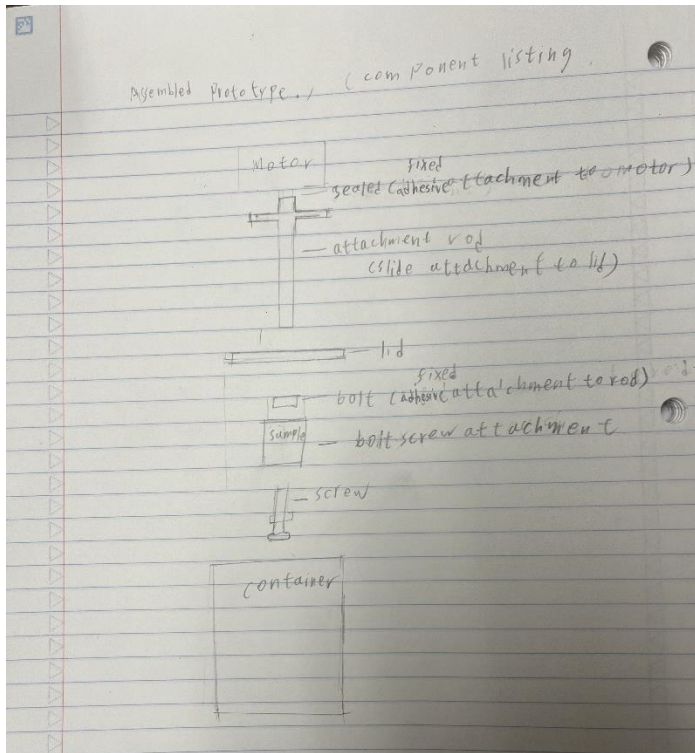 Assembled Prototype., (component listing.
Motor
fixed
sealed (adhesive attachment to motor)
attachment rod
(slide attachment to lid)
lid
fixed
bolt (adhesive attachment to rod)
sample
bolt screw attachment
screw
container